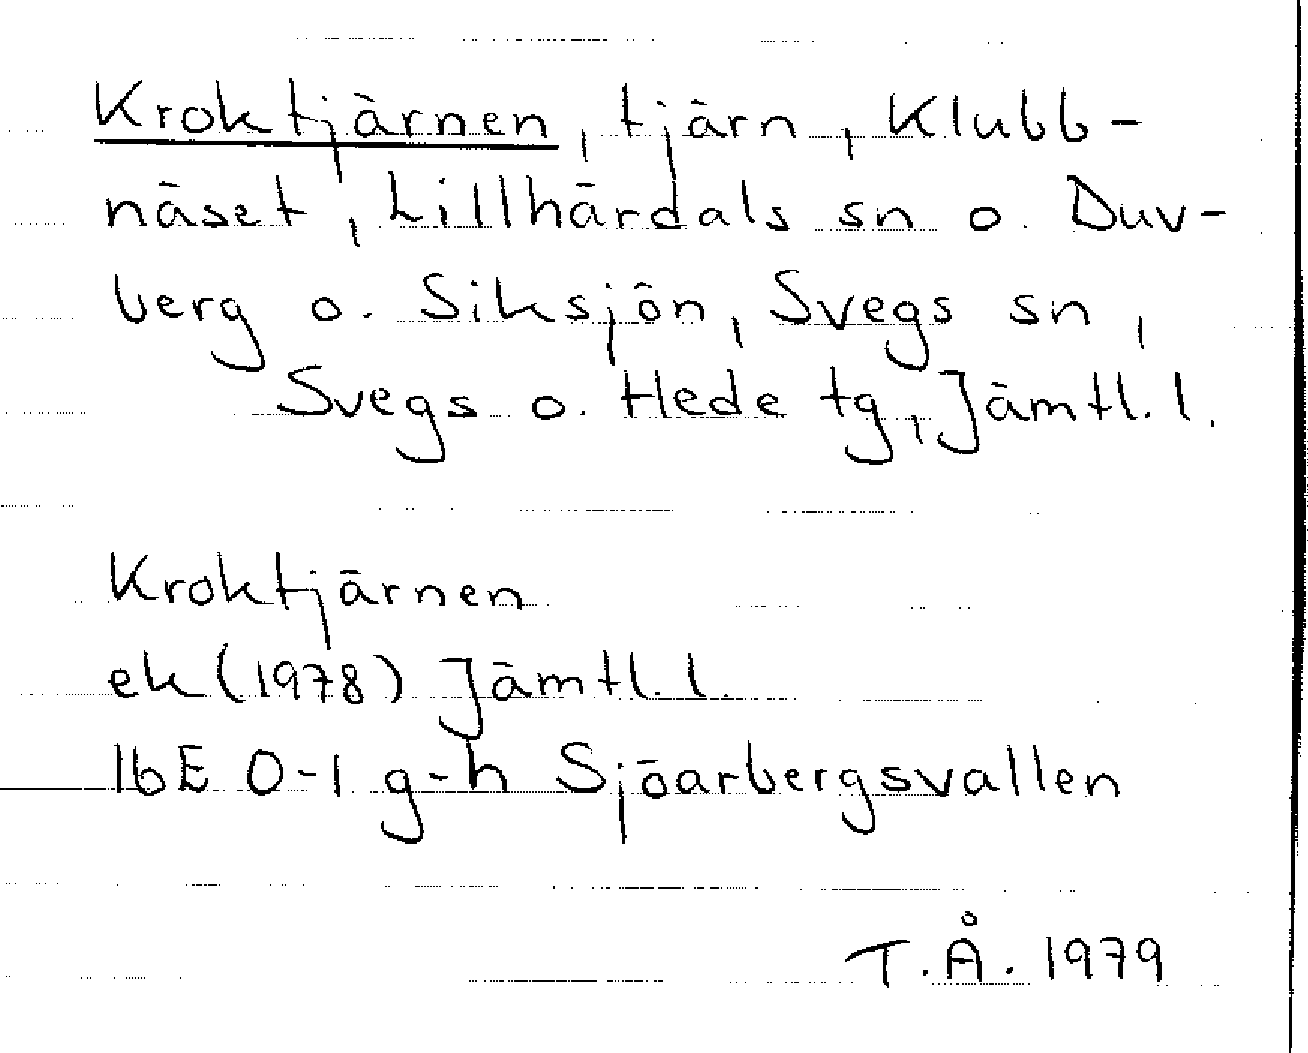 Kroktjärnen, tjärn, Klubb-
näset, Lillhärdals sn o. Duv-
berg o. Siksjön, Svegs sn,
Svegs o. Hede tg, Jämtl. l.
Kroktjärnen
ek (1978) Jämtl. l.
16E 0-1 g-h Sjöarbergsvallen
T.Å. 1979